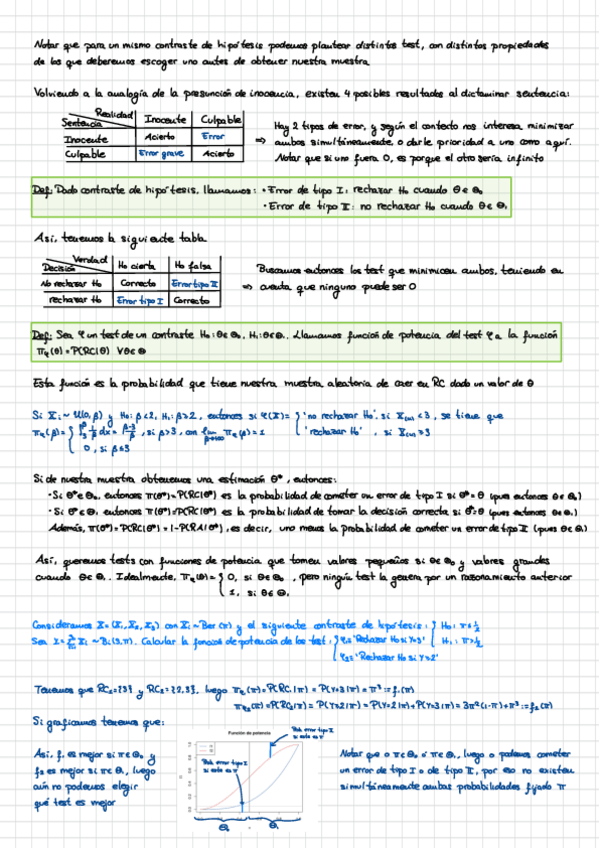 Notar que para un mismo contraste de hipótesis podemos plantear distintos test, con distintas propiedades
de los que deberemos escoger uno antes de obtener nuestra muestra
Volviendo a la analogía de la presunción de inocencia, existen 4 posibles resultados al dictaminar sentencia:
Realidad Inocente Culpable
Sentencia
Inocente Acierto Error
Culpable Error grave Acierto
⇒ Hay 2 tipos de error, y según el contexto nos interesa minimizar
ambos simultáneamente o darle prioridad a uno como aquí.
Notar que si uno fuera 0, es porque el otro sería infinito
Def: Dado contraste de hipótesis, llamamos: • Error de tipo I: rechazar H₀ cuando θ∈Θ₀
• Error de tipo II: no rechazar H₀ cuando θ∈Θ₁
Así, tenemos la siguiente tabla
Verdad H₀ cierta H₀ falsa
Decisión
No rechazar H₀ Correcto Error tipo II
rechazar H₀ Error tipo I Correcto
⇒ Buscamos entonces los test que minimicen ambos, teniendo en
cuenta que ninguno puede ser 0
Def: Sea φ un test de un contraste H₀: θ∈Θ₀, H₁: θ∈Θ₁. Llamamos función de potencia del test φ a la función
π_φ(θ) = P(RC|θ) ∀θ∈Θ
Esta función es la probabilidad que tiene nuestra muestra aleatoria de caer en RC dado un valor de θ
Si Xᵢ ~ U(0,β) y H₀: β<2, H₁: β≥2, entonces si φ(X) = { 'no rechazar H₀' si X₍ₙ₎<3, se tiene que
'rechazar H₀', si X₍ₙ₎≥3
, si β>3, con lim π_φ(β)=1
0, si β≤3
Si de nuestra muestra obtenemos una estimación θ*, entonces:
• Si θ*∈Θ₀, entonces π(θ*)=P(RC|θ*) es la probabilidad de cometer un error de tipo I si θ*=θ (pues entonces θ∈Θ₀)
• Si θ*∈Θ₁, entonces π(θ*)=P(RC|θ*) es la probabilidad de tomar la decisión correcta si θ*=θ (pues entonces θ∈Θ₁)
Además, π(θ*)=P(RC|θ*)=1-P(RA|θ*), es decir, uno menos la probabilidad de cometer un error de tipo II (pues θ∈Θ₁)
Así, queremos tests con funciones de potencia que tomen valores pequeños si θ∈Θ₀ y valores grandes
cuando θ∈Θ₁. Idealmente, π_φ(θ) = { 0, si θ∈Θ₀, pero ningún test la genera por un razonamiento anterior
1, si θ∈Θ₁
Consideramos X=(X₁,X₂,X₃) con Xᵢ~Ber(π) y el siguiente contraste de hipótesis: { H₀: π≤½
Sea Y=ΣXᵢ~Bi(3,π). Calcular la función de potencia de los test: { φ₁='Rechazar H₀ si Y=3' H₁: π>½
φ₂='Rechazar H₀ si Y≥2'
Tenemos que RC₁={3} y RC₂={2,3}, luego π_φ₁(π)=P(RC₁|π)=P(Y=3|π)=π³:=f₁(π)
π_φ₂(π)=P(RC₂|π)=P(Y≥2|π)=P(Y=2|π)+P(Y=3|π)=3π²(1-π)+π³:=f₂(π)
Si graficamos tenemos que:
Así, f₁ es mejor si π∈Θ₀ y
f₂ es mejor si π∈Θ₁, luego
aún no podemos elegir
qué test es mejor
Función de potencia
Prob error tipo I
si este es π
Prob error tipo II
si este es π
Θ₀ Θ₁
Notar que o π∈Θ₀ o π∈Θ₁, luego o podemos cometer
un error de tipo I o de tipo II, por eso no existen
simultáneamente ambas probabilidades fijado π